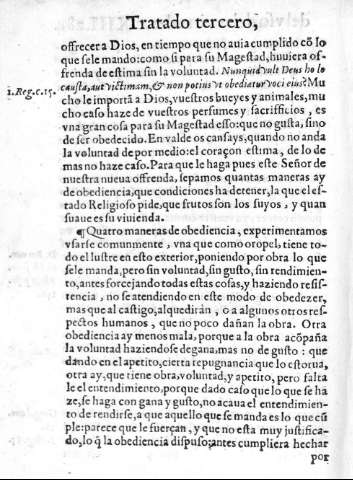 Tratado tercero,
offrecer a Dios, en tiempo que no auia cumplido cõ lo
que sele mando: como si para su Magestad, huuiera of-
frenda de estima sin la voluntad. Nunquid vult Deus holo
1.Reg.c.15. causta, aut victimam, & non potius vt obediatur voci eius? Mu
cho le importã a Dios, vuestros bueyes y animales, mu
cho caso haze de vuestros perfumes y sacrifficios, es
vna gran cosa para su Magestad esso: que no gusta, sino
de ser obedecido. En valde os cansays, quando no anda
la voluntad de por medio: el coraçon estima, de lo de
mas no haze caso. Para que le haga pues este Señor de
nuestra nueua offrenda, sepamos quantas maneras ay
de obediencia, que condiciones ha de tener, la que el es-
tado Religioso pide, que frutos son los suyos, y quan
suaue es su viuienda.
¶ Quatro maneras de obediencia, experimentamos
vsarse comunmente, vna que como oropel, tiene to-
do el lustre en esto exterior, poniendo por obra lo que
se le manda, pero sin voluntad, sin gusto, sin rendimien-
to, antes forcejando todas estas cosas, y haziendo resis-
tencia, no se atendiendo en este modo de obedezer,
mas que al castigo, al quedirán, o a algunos otros res-
pectos humanos, que no poco dañan la obra. Otra
obediencia ay menos mala, porque a la obra acõpaña
la voluntad haziendose de gana, mas no de gusto: que
dando en el apetito, cierta repugnancia que lo estorua,
otra ay, que tiene obra, voluntad, y apetito, pero falta
le el entendimiento, porque dado caso que lo que se ha
ze, se haga con gana y gusto, no acaua el entendimien-
to de rendirse, a que aquello que se manda es lo que cũ
ple: parece que le fuerçan, y que no esta muy justifica-
do, lo q̃ la obediencia dispuso: antes cumpliera hechar
por